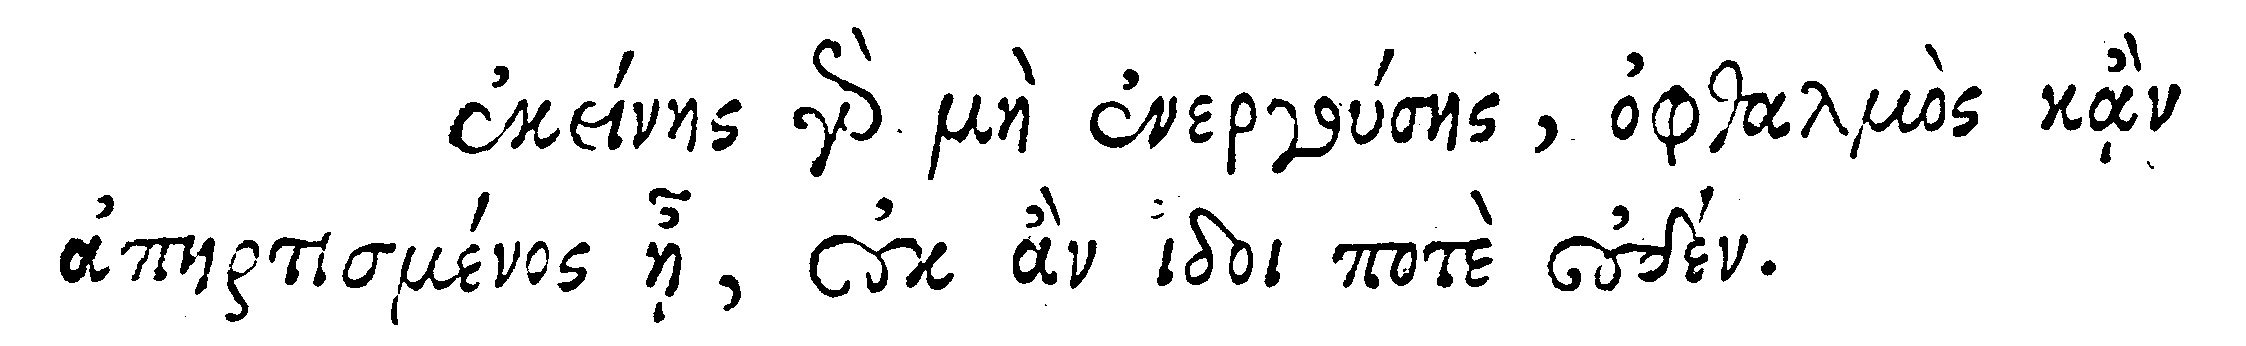 ἐκείνης γὸ μὴ ἐνεργούσης, ὀφθαλμὸς κᾂν
ἀπηρτισμένος ᾖ, οὐκ ἂν ἰδοι ποτὲ οὐδέν.